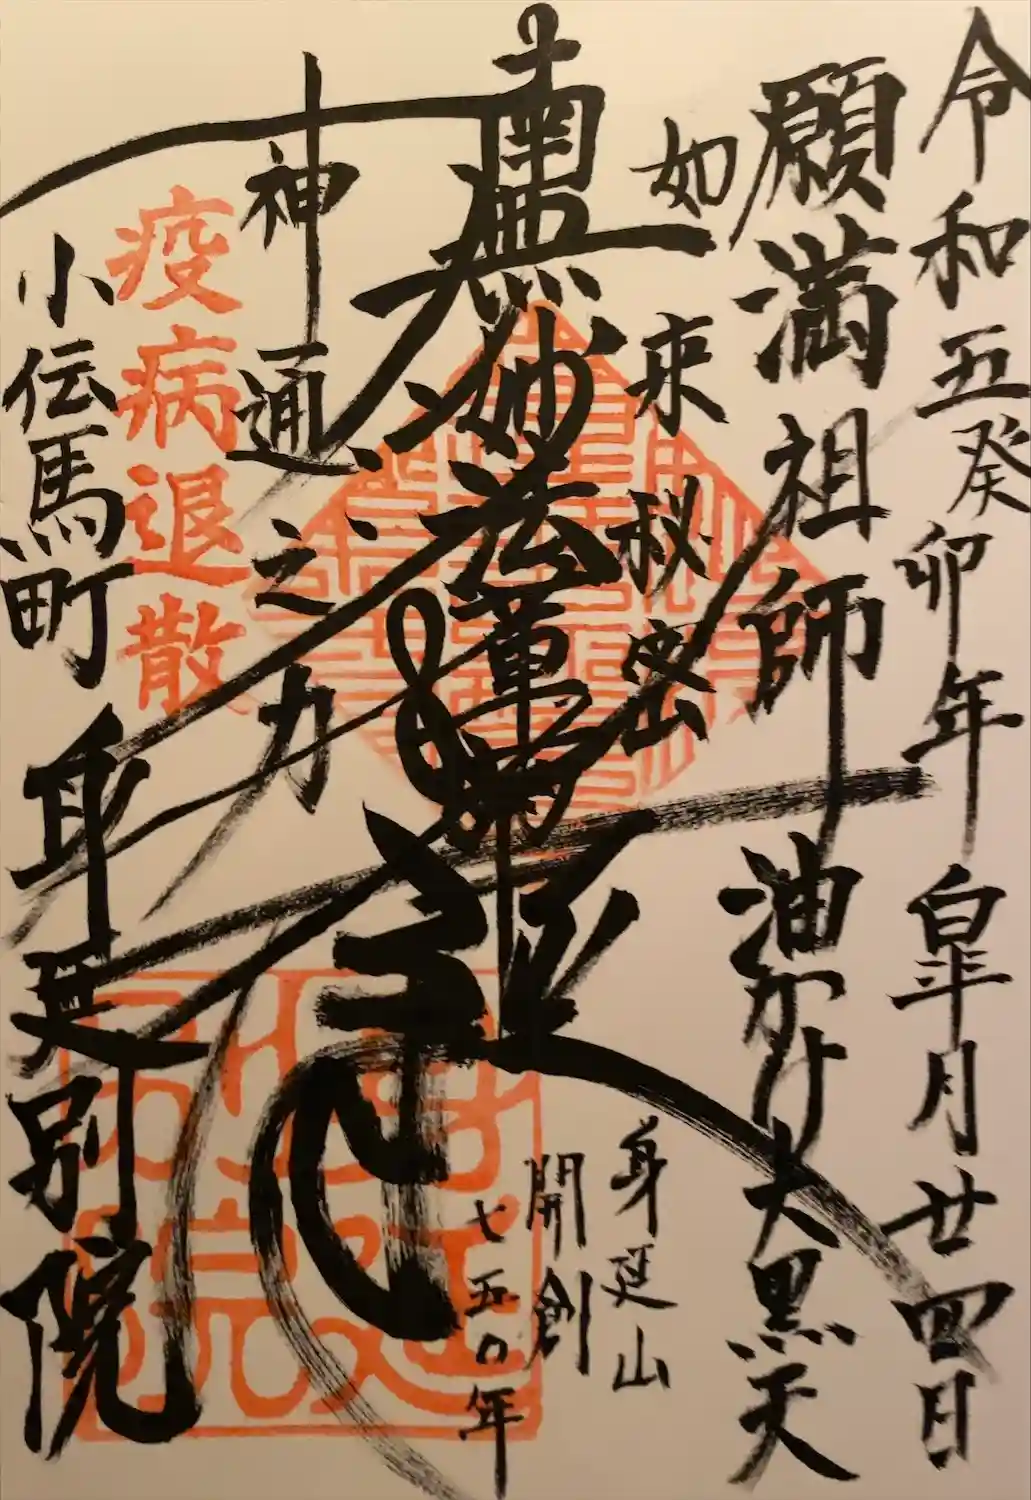 令和五癸卯年皐月廿四日
願満祖師油かけ大黒天
如来秘密
南無妙法蓮華経
神通之力
疫病退散
小伝馬町身延別院
身延山
開創
七五〇年